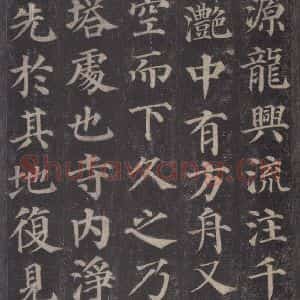 源龍興流注千
灔中有方舟又
空而下久之乃
塔處也寺内淨
先於其地復見
Shufawang.Cn